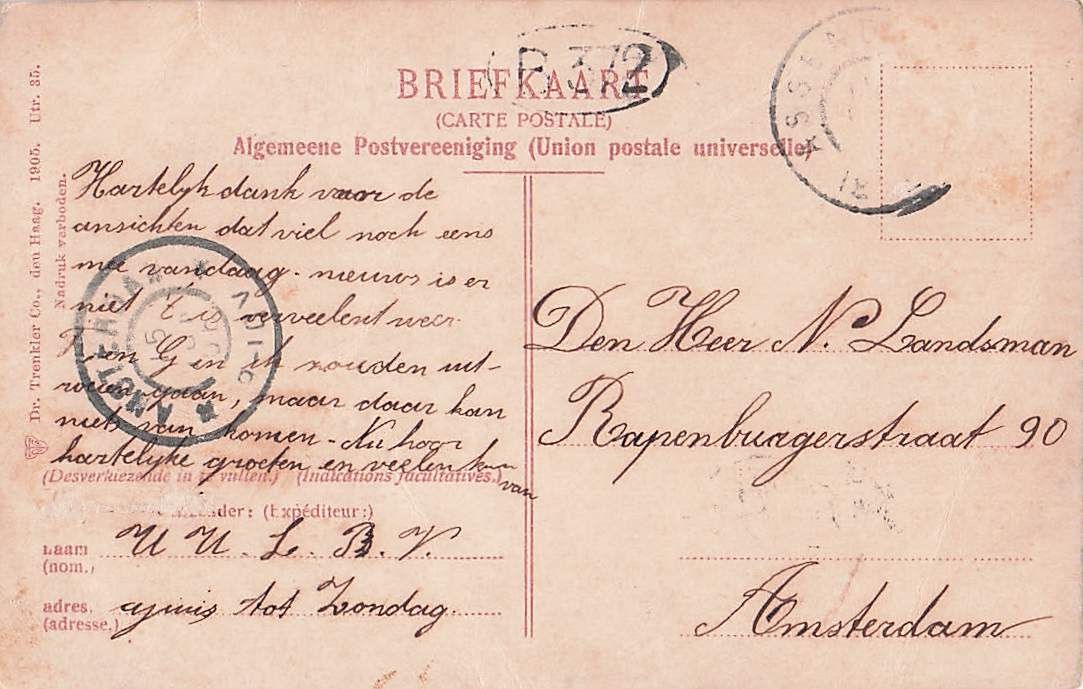 B 372
BRIEFKAART
(CARTE POSTALE)
Algemeene Postvereeniging (Union postale universelle)
WASSENAAR
Dr. Trenkler Co., den Haag. 1905. Utr. 35.
Nadruk verboden.
Hartelijk dank voor de
ansichten dat viel noch eens
mee vandaag. nieuws is er
niet is verveelent weer.
en ik zouden uit-
gaan, maar daar kan
niets van komen - Nu hoor
hartelijke groeten en veelen
van
AMSTERDAM
(Desverkiezende in te vullen.) (Indications facultatives.)
Afzender: (Expéditeur:)
naam U U. L. B. V.
(nom.)
adres. tot Zondag.
(adresse.)
Den Heer N. Landsman
Rapenburgerstraat 90
Amsterdam